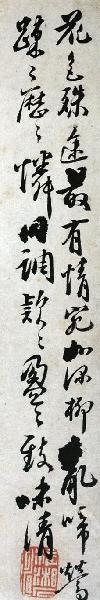 花色殊途最有情宛如深柳亂啼鶯
疎々歷々憐同調欵々盈々致味清